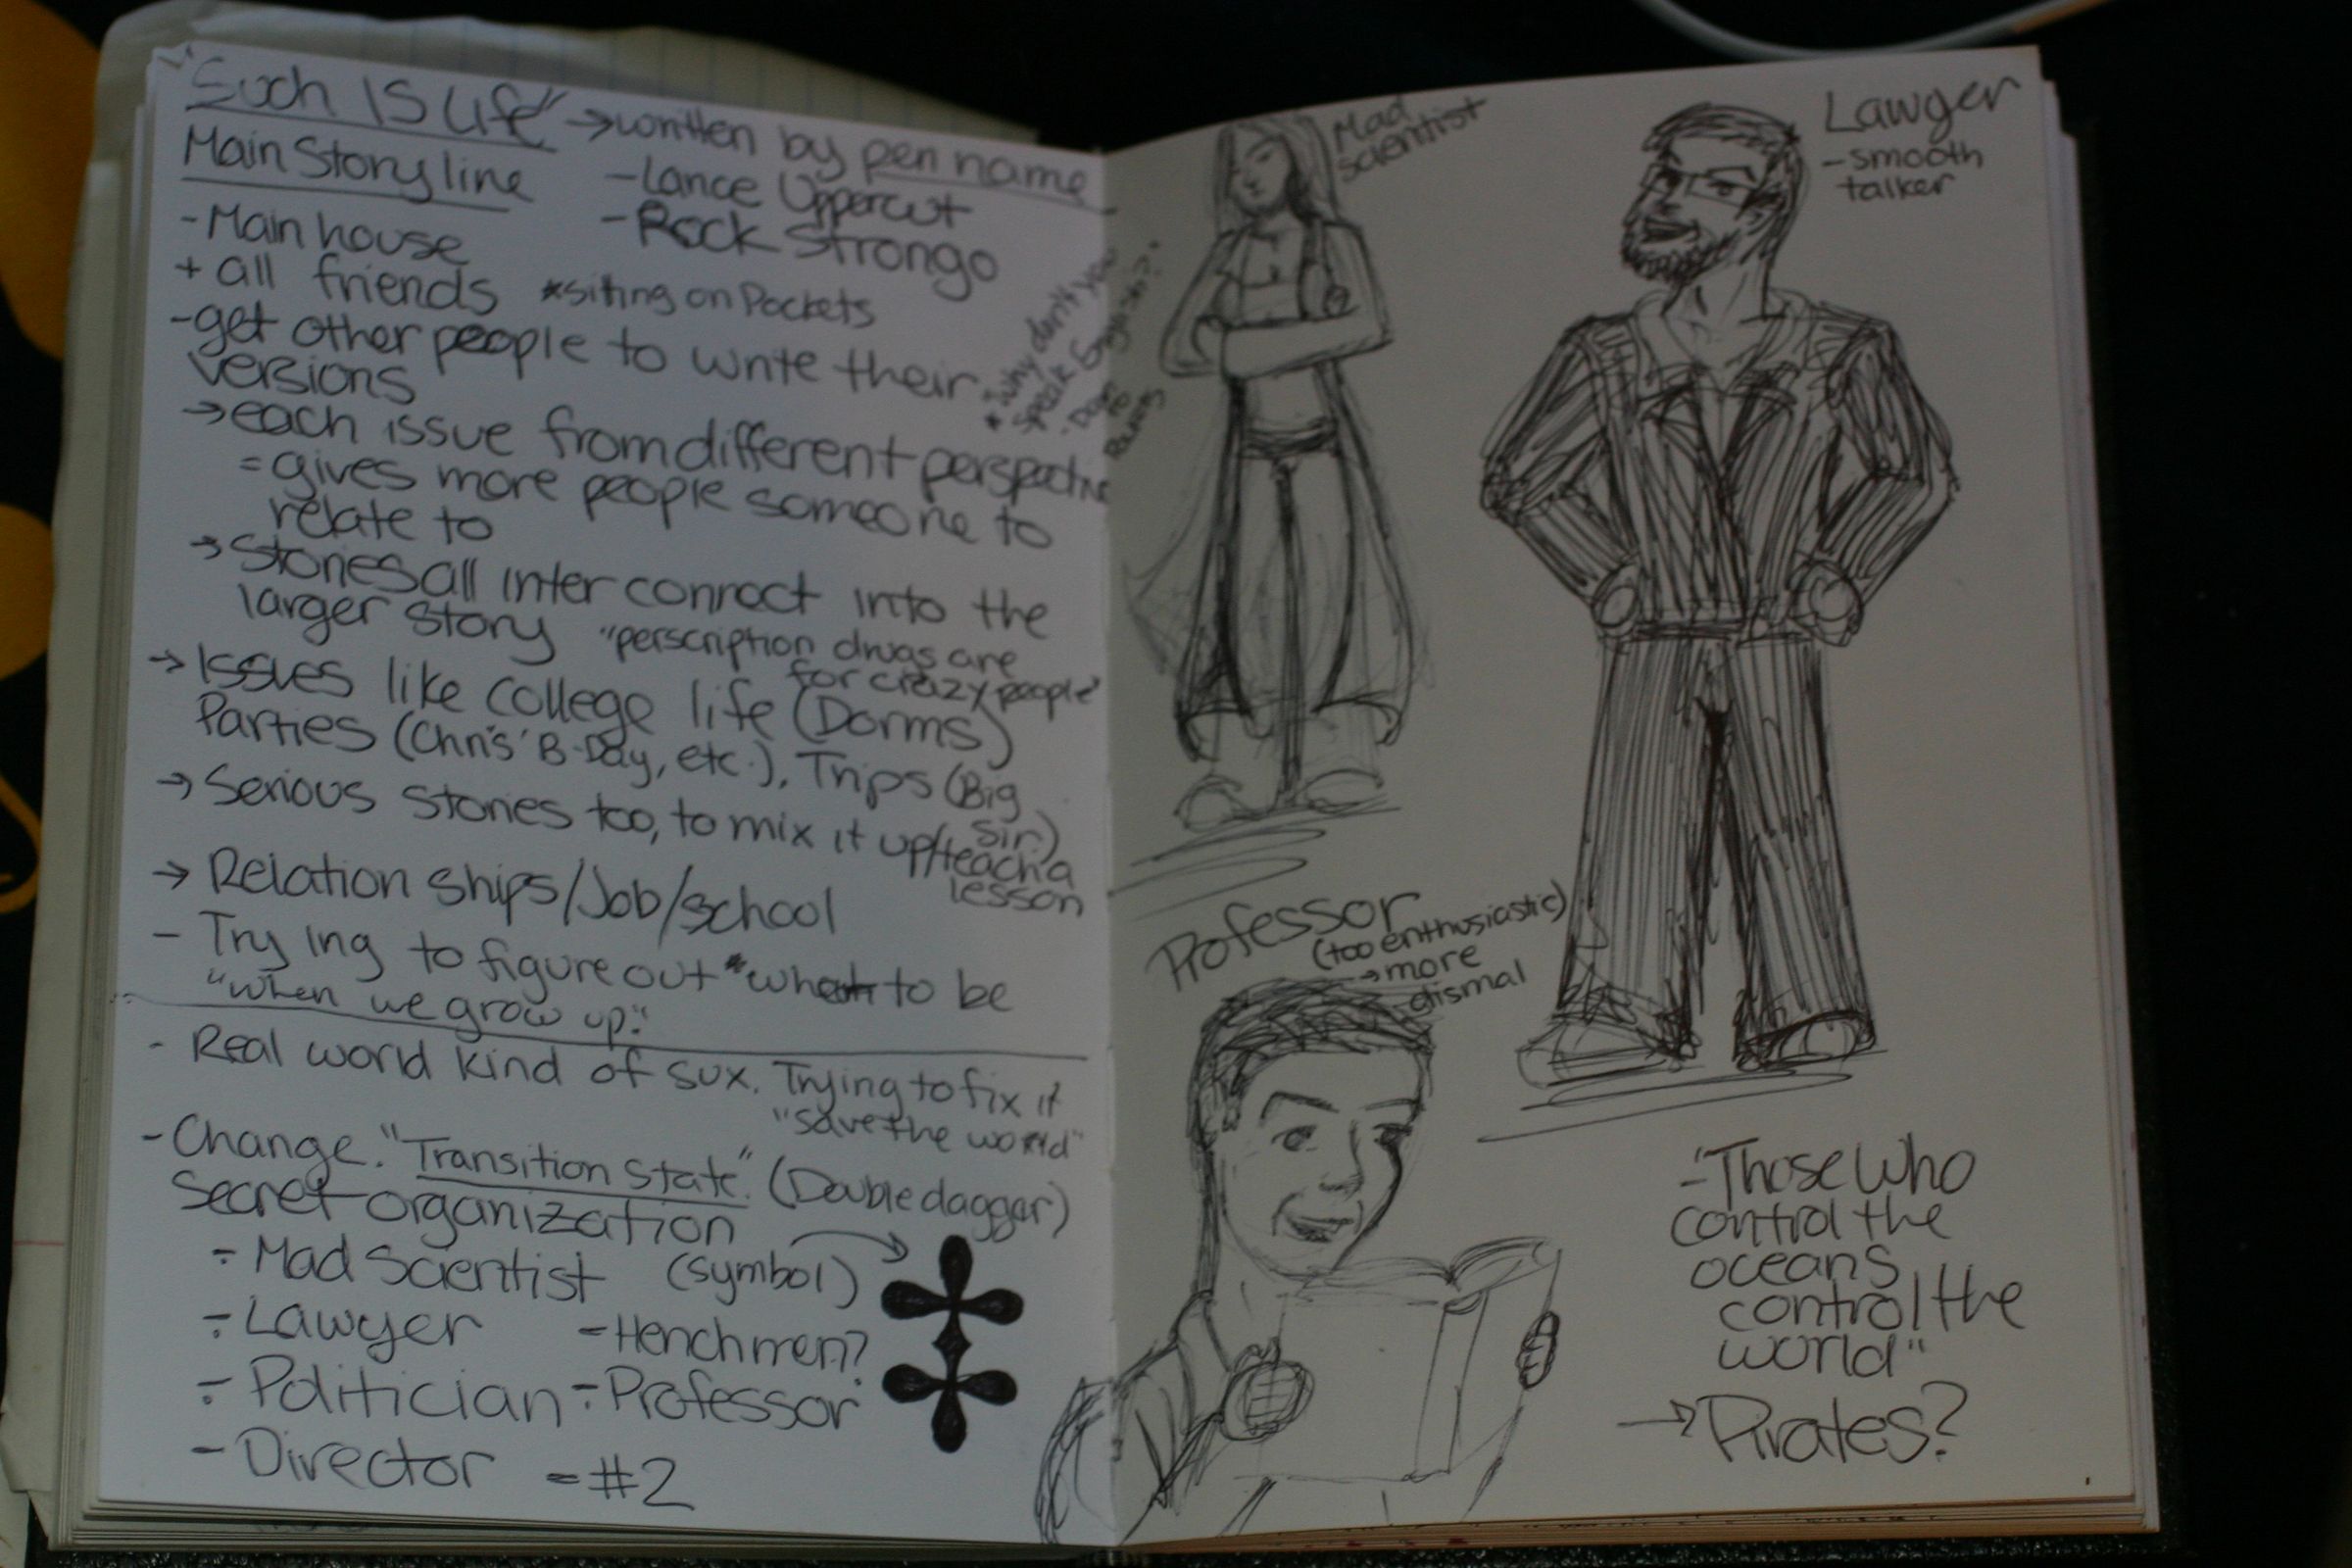 "Such IS Life" → written by pen name
Main Story line
- Lance Uppercut
- Rock Strongo
- Main house
+ all friends
*sitting on Pockets
- get other people to write their
versions
* "Why don't you
speak
→ each issue from different perspective
= gives more people someone to
relate to
→ Stories all inter connect into the
larger story
"perscription drugs are
for crazy people"
→ Issues like college life (Dorms)
Parties (Chris' B-Day, etc.), Trips (Big
Sir)
→ Serious stories too, to mix it up/teach a
lesson
→ Relation ships/Job/school
- Try ing to figure out *what to be
"when we grow up."
- Real world kind of sux. Trying to fix it
"save the world"
- Change. "Transition State". (Double dagger)
Secret organization
- Mad Scientist (symbol)
- Lawyer - Henchmen?
- Politician - Professor
- Director - #2
Mad
scientist
Lawyer
- smooth
talker
Professor
(too enthusiastic)
→ more
dismal
- "Those who
control the
oceans
control the
world"
→ Pirates?